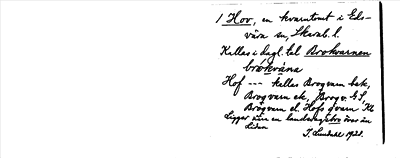 1 Hov, en kvarntomt i Eds-
våra sn, Skarab. l.
Kallas i dagl. tal Brokvarnen
brókvàṇa
Hof --- kallas Brogvarn bek,
Brogvarn ek, Brogv. G S,
Brogvarn el. Hofs qvarn Kb
Ligger vid en landsvägsbro över ån
Lidan
J. Lundahl 1921.